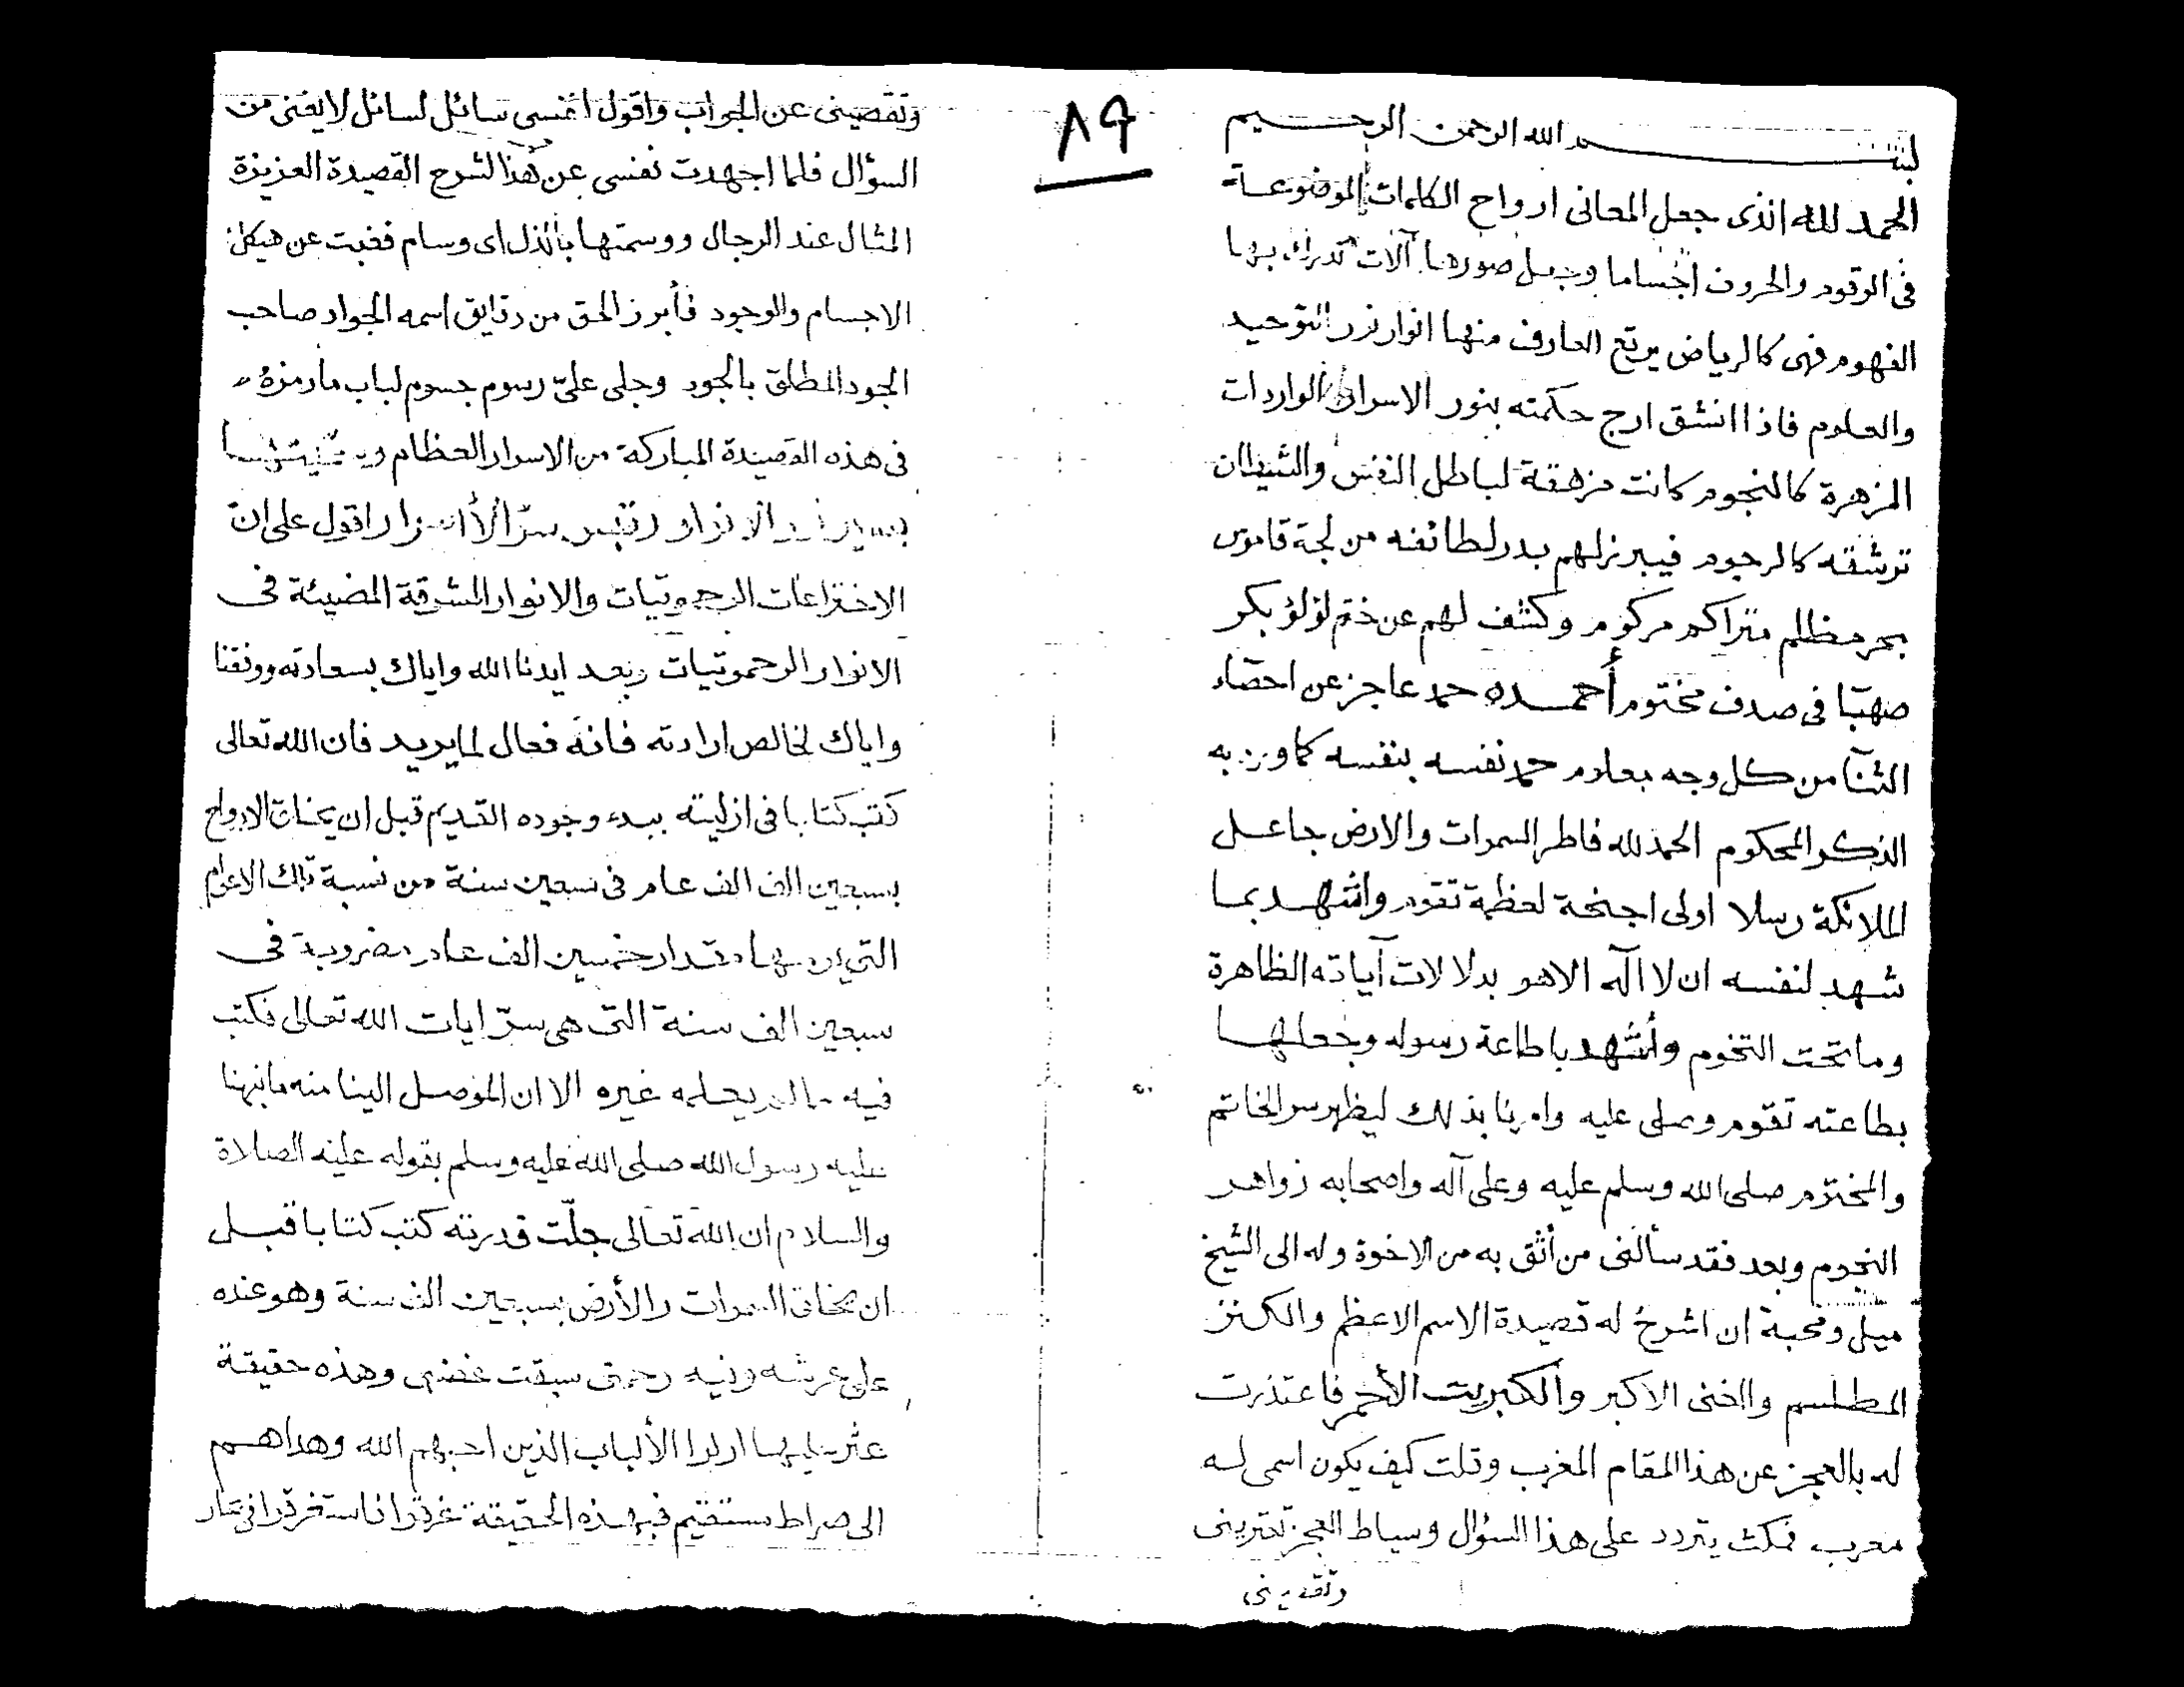 بسم الله الرحمن الرحيم
الحمد لله الذى جعل المعانى ارواح الكلمات الموضوعة
فى الرقوم والحروف اجساما وجعل صورها آلات تدرك بها
الفهوم فهى كالرياض يرتع العارف منها انوار نزر التوحيد
والعلوم فاذا انشق ارج حكمته بنور الاسرار الواردات
المزهرة كالنجوم كانت مزهقة لباطل النفس والشيطان
ترشقه كالرجوم فيبرز لهم بدر لطائفه من لجة قاموس
بحر مظلم متراكم مركوم وكشف لهم عن ختم لؤلؤ بكر
صهبا فى صدف مختوم أحمده حمد عاجز عن احصاء
الثنا من كل وجه معلوم حمد نفسه بنفسه كما ورد به
الذكر المحكوم الحمد لله فاطر السموات والارض جاعل
الملائكة رسلا اولى اجنحة لعظمة تقوم واشهد بما
شهد لنفسه ان لا اله الا هو بدلالات آياته الظاهرة
وما تحت التخوم وأشهد باطاعة رسوله وجعلها
بطاعته تقوم وصلى عليه وامرنا بذلك ليظهر سر الخاتم
والمختوم صلى الله وسلم عليه وعلى آله واصحابه زواهر
النجوم وبعد فقد سألنى من أثق به من الاخوة وله الى الشيخ
ميل ومحبة ان اشرح له قصيدة الاسم الاعظم والكنز
المطلسم والغنى الاكبر والكبريت الأحمر فاعتذرت
له بالعجز عن هذا المقام المغرب وقلت كيف يكون اسمى له
معرب فمكث يتردد على هذا السؤال وسياط العجز تعترينى
وتقصينى
٨٩
وتقصينى عن الجواب واقول لنفسى سائل لسائل لا يغنى من
السؤال فلما اجهدت نفسى عن هذا لشرح القصيدة العزيزة
المثال عند الرجال ووسمتها بالذل اى وسام فغبت عن هيكل
الاجسام والوجود فأبرز الحق من رقايق اسمه الجواد صاحب
الجود المطلق بالجود وجلى علىّ رسوم جسوم لباب ما رمزه
فى هذه القصيدة المباركة من الاسرار العظام
الانوار سرّ الأسرار اقول على ان
الاختراعات الرحموتيات والانوار المشرقة المضيئة فى
الانوار الرحموتيات وبعد ايدنا الله واياك بسعادته ووفقنا
واياك لخالص ارادته فانه فعال لما يريد فان الله تعالى
كتب كتابا فى ازليته ببدء وجوده القديم قبل ان يخلق الارواح
بسبعين الف الف عام فى سبعين سنة من نسبة تلك الاعوام
التى يومها مقدار خمسين الف عام مضروبة فى
سبعين الف سنة التى هى سرّ ايات الله تعالى فكتب
فيه ما لم يعلمه غيره الا ان الموصل الينا منه ما نبهنا
عليه رسول الله صلى الله عليه وسلم بقوله عليه الصلاة
والسلام ان الله تعالى جلّت قدرته كتب كتابا قبل
ان يخلق السموات والأرض بسبعين الف سنة وهو عنده
على عرشه وفيه رحمتى سبقت غضبى وهذه حقيقة
عثر عليها اولوا الألباب الذين احبهم الله وهداهم
الى صراط مستقيم فبهذه الحقيقة غرقوا فاستغرقوا فى